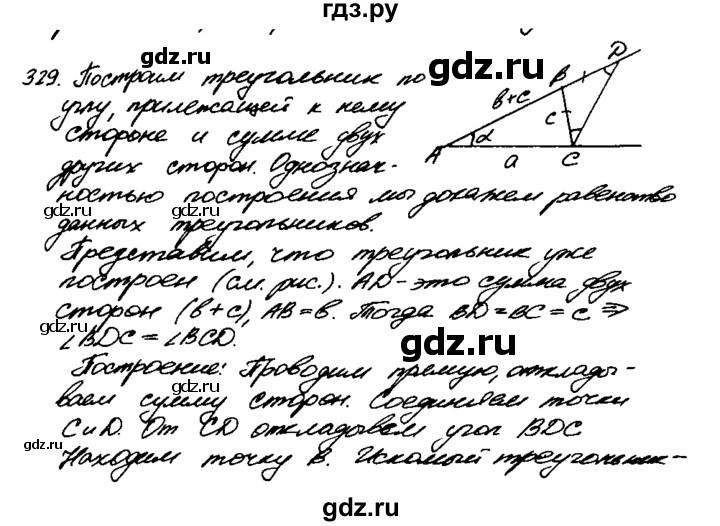 гдз.ру
329. Построим треугольник по
углу, прилежащей к нему
стороне и сумме двух
других сторон. Однознач-
ностью построения мы докажем равенство
данных треугольников.
Представим, что треугольник уже
построен (см. рис.). AD - это сумма двух
сторон (b+c), AB = b. Тогда BD = BC = c ⇒
∠BDC = ∠BCD.
Построение: Проводим прямую, отклады-
ваем сумму сторон. Соединяем точки
C и D. От CD откладываем угол BDC
Находим точку B. Искомый треугольник -
A
B
C
D
b+c
c
α
a
gdz.ru
gdz.ru
gdz.ru
gdz.ru
gdz.ru
gdz.ru
gdz.ru
gdz.ru
gdz.ru
gdz.ru
gdz.ru
gdz.ru